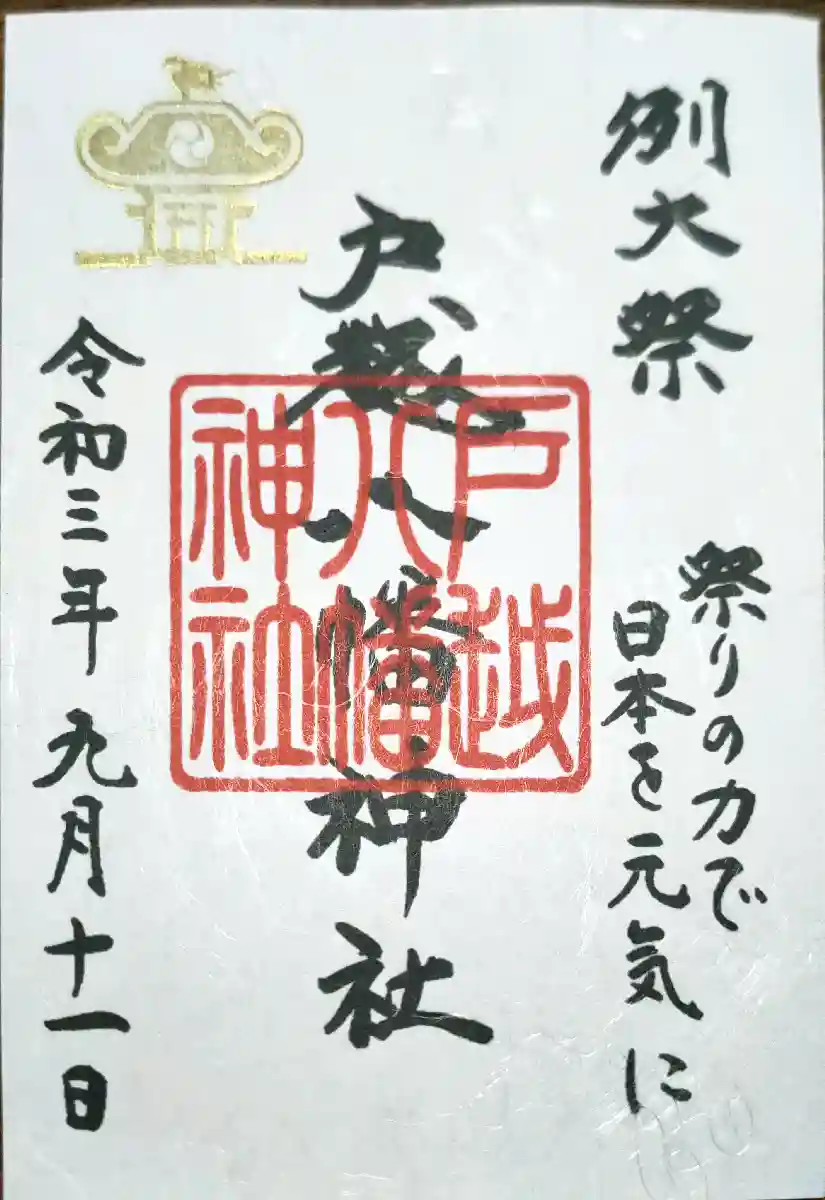 例大祭
祭りの力で
日本を元気に
戸越八幡神社
戸越
八幡
神社
令和三年九月十一日